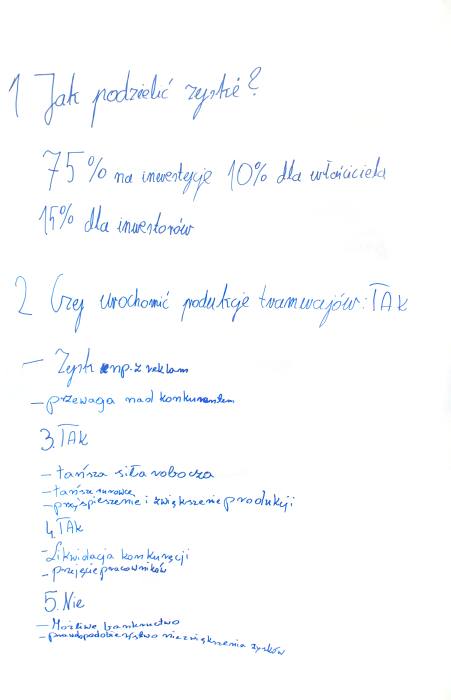 1 Jak podzielić zyski?
75% na inwestycje 10% dla właściciela
15% dla inwestorów
2 Czy urochomić produkcje tramwajów: TAK
- Zysk np. z reklam
- przewaga nad konkurentem
3. TAK
- tańsza siła robocza
- tańsze surowce
- przyśpieszenie i zwiększenie produkcji
4. TAK
- Likwidacja konkurecji
- przejęcie pracowników
5. Nie
- Możliwe bankructwo
- prawdopodobieństwo niezwiększenia zysków